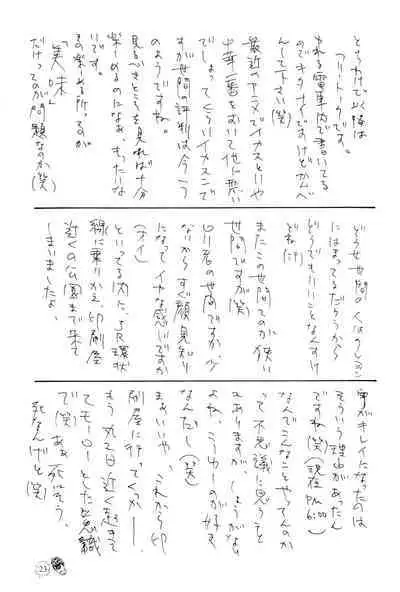 とゆうわけで以降は
フリートークです。
ゆれる電車内で書いてる
のでキタナイですけどかんべ
んして下さい(笑)
最近のアニメでイカスといや
中華一番をおいて他に無い
でしょってくらいイカスんで
すが世間の評判は今一つ
のようですね。
見るべきところを見れば十分
楽しめるのになぁ。もったいな
いです。
その楽しめる所ってのが
「美味」
だけってのが問題なのか(笑)
どうせ世間の人は
にはまってるだろうから
どうでもいいことなんすけ
どねけ
またこの世間てのが狭い
世間ですが(笑)
の世間ですが、少
なりからすぐ顔見知り
になって、イヤな感じですが
といってる内に、JR環状
線に乗りかえ、印刷屋
近くの公園まで来て
しまいましたよ、
字がキレイになったのは
そういう理由があったん
ですね(笑)(現在PM6:00)
なんでこんなことやってんのか
って不思議に思うこと
もありますが、しょうがない
よね、こうゆーのが好き
なんだし(笑)
まぁいいや、これから印
刷屋に行ってくっかー!
もう丸1日近く起きて
てモーローとした意識
で(笑)あぁ死にそう。
死なんけど(笑)
23